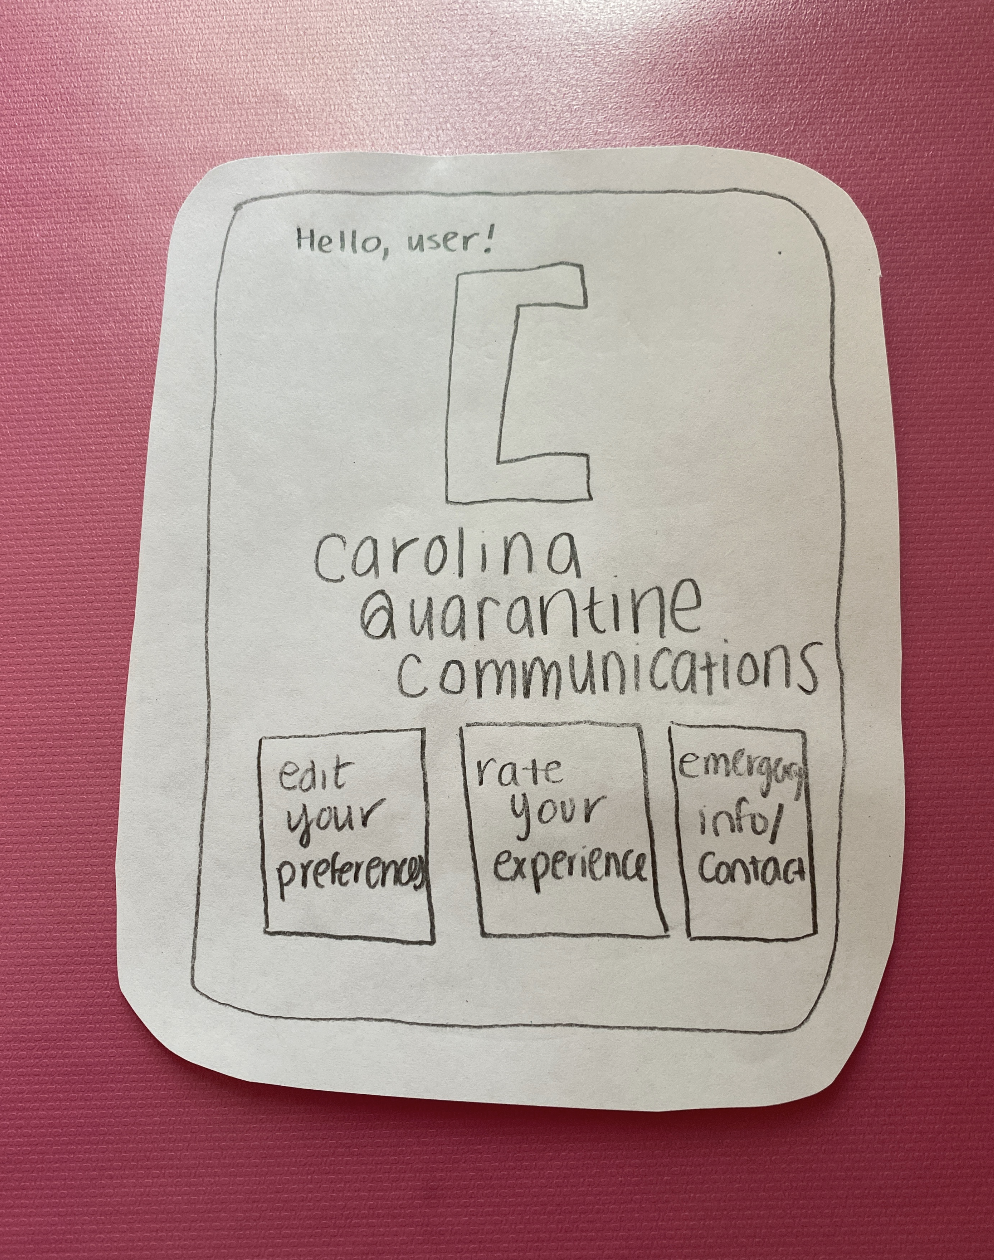 Hello, user!
C
Carolina
Quarantine
Communications
edit
your
preferences
rate
your
experience
emergency
info/
contact